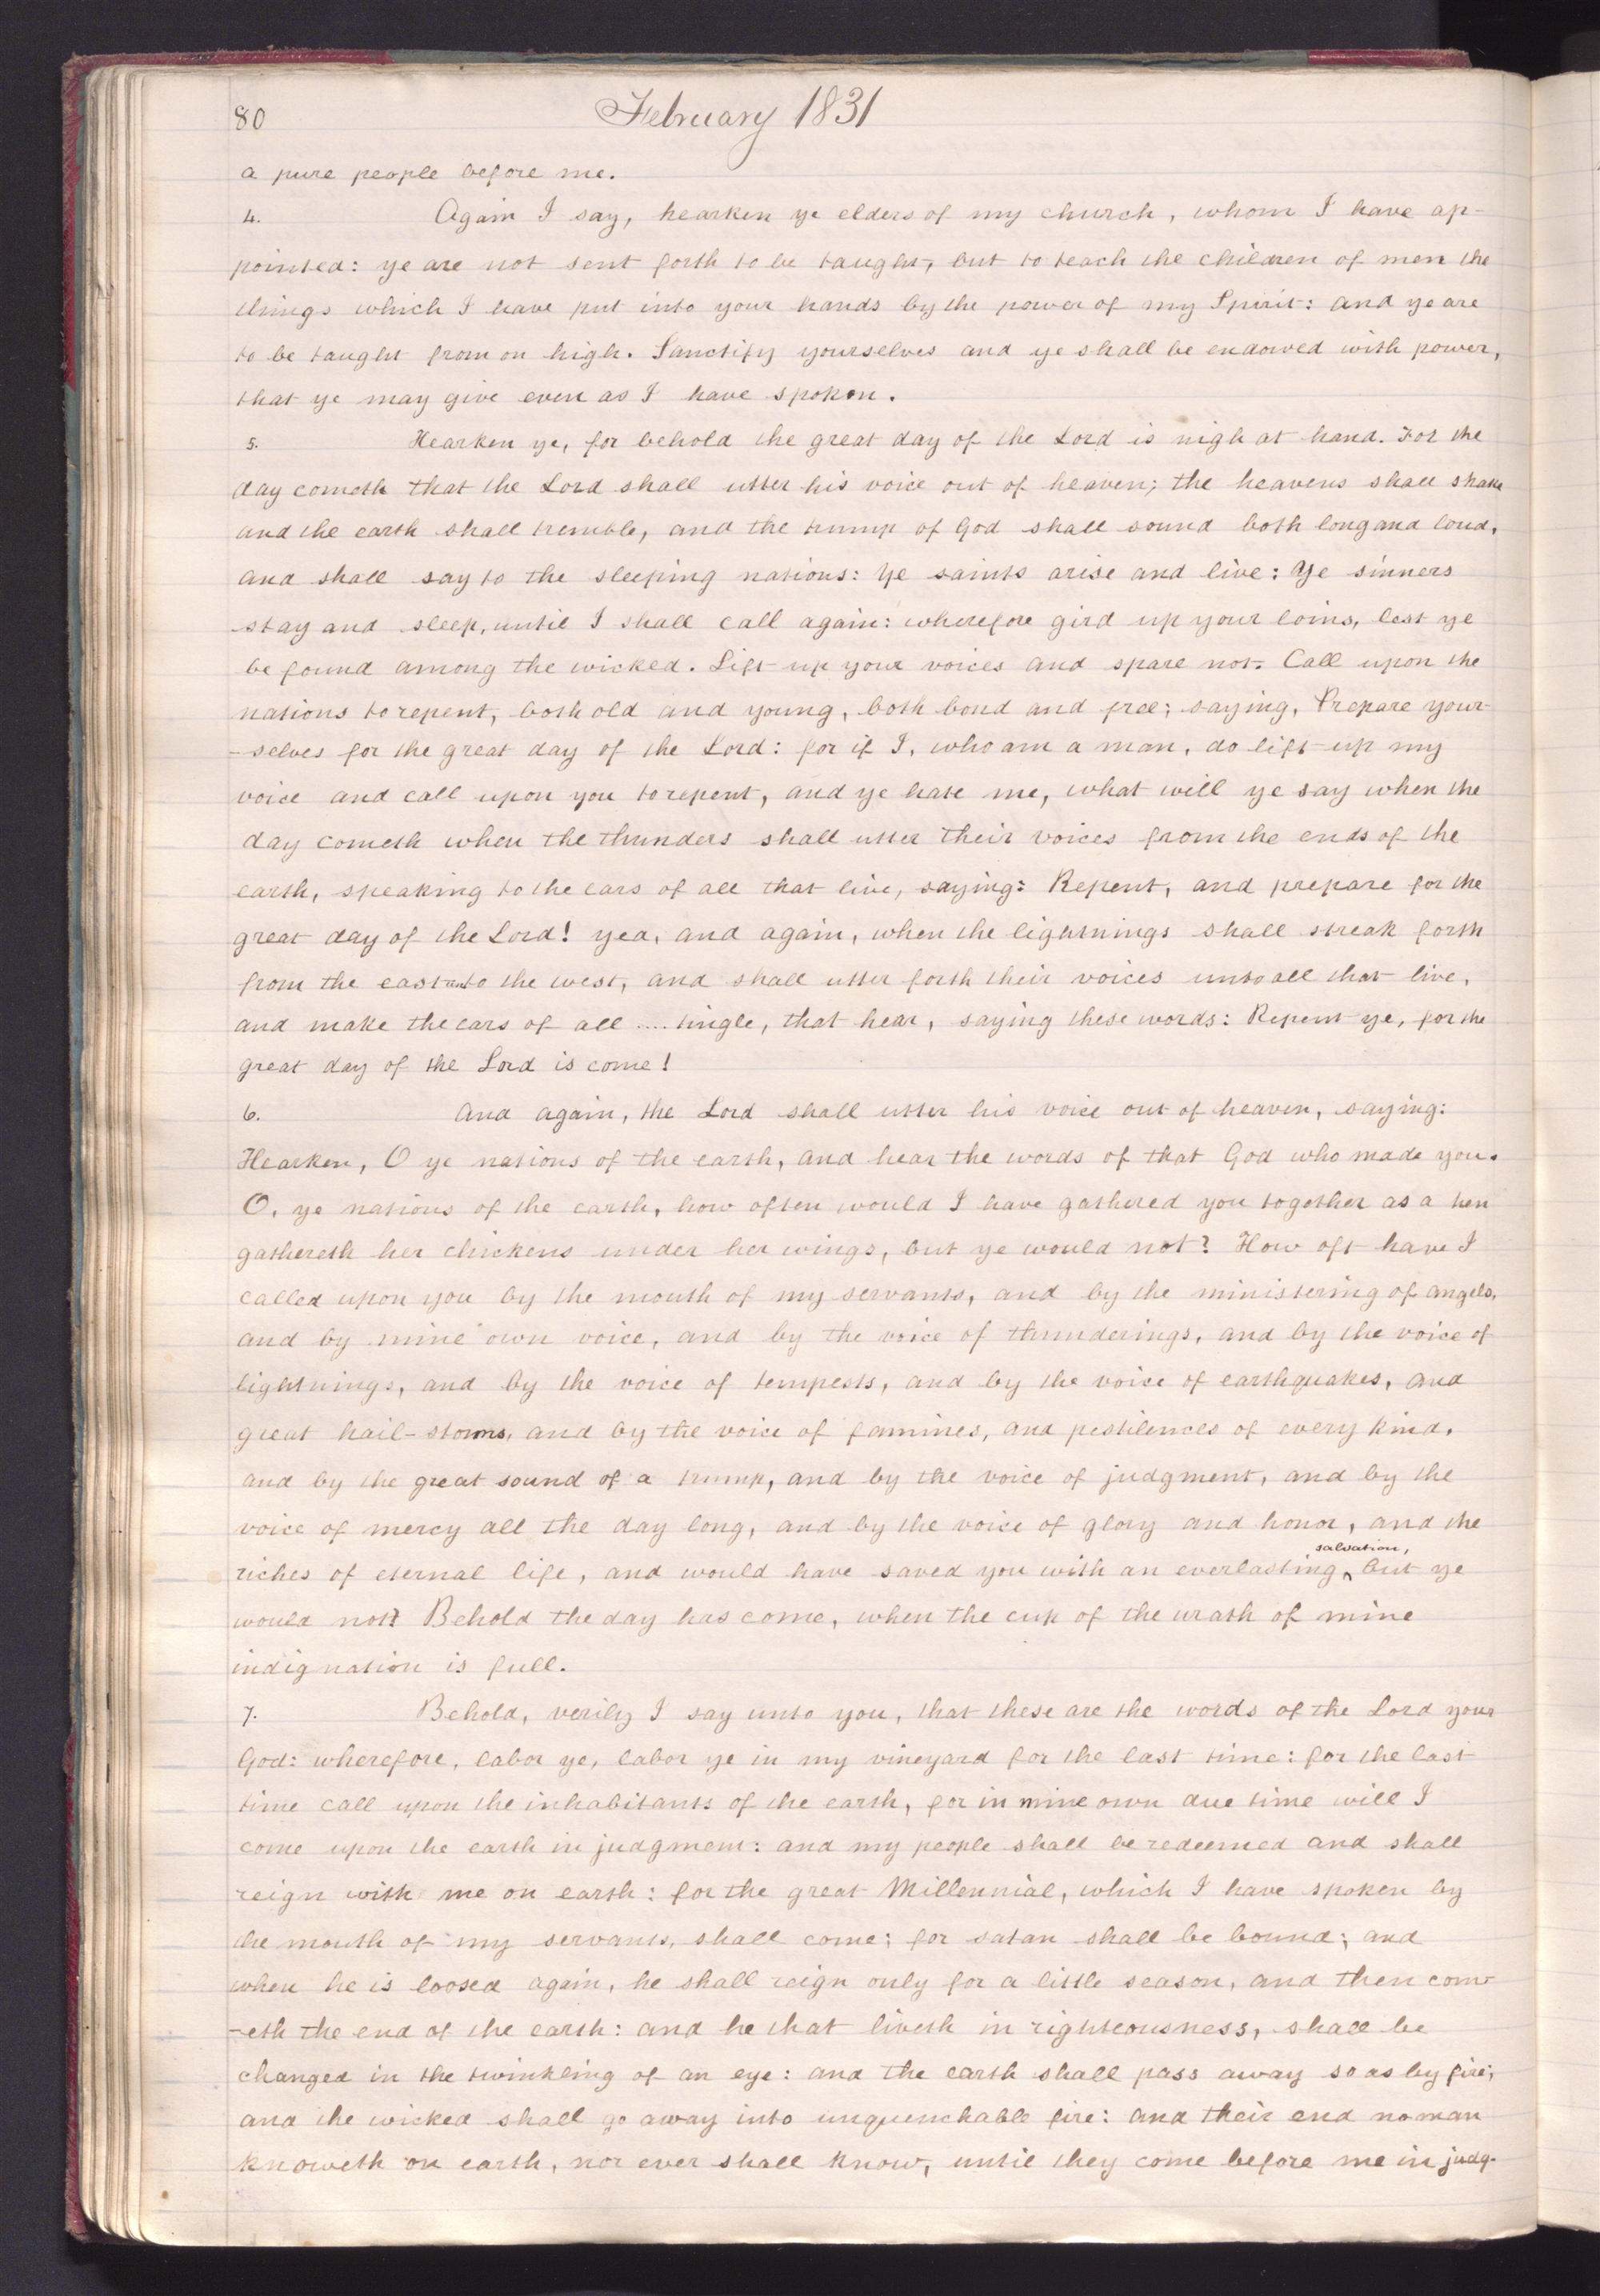 80
February 1831
a pure people before me.
4. Again I say, hearken ye elders of my church, whom I have ap-
pointed: ye are not sent forth to be taught, but to teach the children of men the
things which I have put into your hands by the power of my Spirit: and ye are
to be taught from on high. Sanctify yourselves and ye shall be endowed with power,
that ye may give even as I have spoken.
5. Hearken ye, for behold the great day of the Lord is nigh at hand. For the
day cometh that the Lord shall utter his voice out of heaven; the heavens shall shake
and the earth shall tremble, and the trump of God shall sound both long and loud,
and shall say to the sleeping nations: Ye saints arise and live: Ye sinners
stay and sleep, until I shall call again: wherefore gird up your loins, lest ye
be found among the wicked. Lift up your voices and spare not. Call upon the
nations to repent, both old and young, both bond and free; saying, Prepare your-
-selves for the great day of the Lord: for if I, who am a man, do lift up my
voice and call upon you to repent, and ye hate me, what will ye say when the
day cometh when the thunders shall utter their voices from the ends of the
earth, speaking to the ears of all that live, saying: Repent, and prepare for the
great day of the Lord! yea, and again, when the lightnings shall streak forth
from the east unto the west, and shall utter forth their voices unto all that live,
and make the ears of all .... tingle, that hear, saying these words: Repent ye, for the
great day of the Lord is come!
6. And again, the Lord shall utter his voice out of heaven, saying:
Hearken, O ye nations of the earth, and hear the words of that God who made you.
O, ye nations of the earth, how often would I have gathered you together as a hen
gathereth her chickens under her wings, but ye would not? How oft have I
called upon you by the mouth of my servants, and by the ministering of angels,
and by mine own voice, and by the voice of thunderings, and by the voice of
lightnings, and by the voice of tempests, and by the voice of earthquakes, and
great hail-storms, and by the voice of famines, and pestilences of every kind,
and by the great sound of a trump, and by the voice of judgment, and by the
voice of mercy all the day long, and by the voice of glory and honor, and the
salvation,
riches of eternal life, and would have saved you with an everlasting ^ but ye
would not? Behold the day has come, when the cup of the wrath of mine
indignation is full.
7. Behold, verily I say unto you, that these are the words of the Lord your
God: wherefore, labor ye, labor ye in my vineyard for the last time: for the last
time call upon the inhabitants of the earth, for in mine own due time will I
come upon the earth in judgment: and my people shall be redeemed and shall
reign with me on earth: for the great Millennial, which I have spoken by
the mouth of my servants, shall come; for satan shall be bound; and
when he is loosed again, he shall reign only for a little season, and then com-
-eth the end of the earth: and he that liveth in righteousness, shall be
changed in the twinkling of an eye: and the earth shall pass away so as by fire;
and the wicked shall go away into unquenchable fire: and their end no man
knoweth on earth, nor ever shall know, until they come before me in judg-